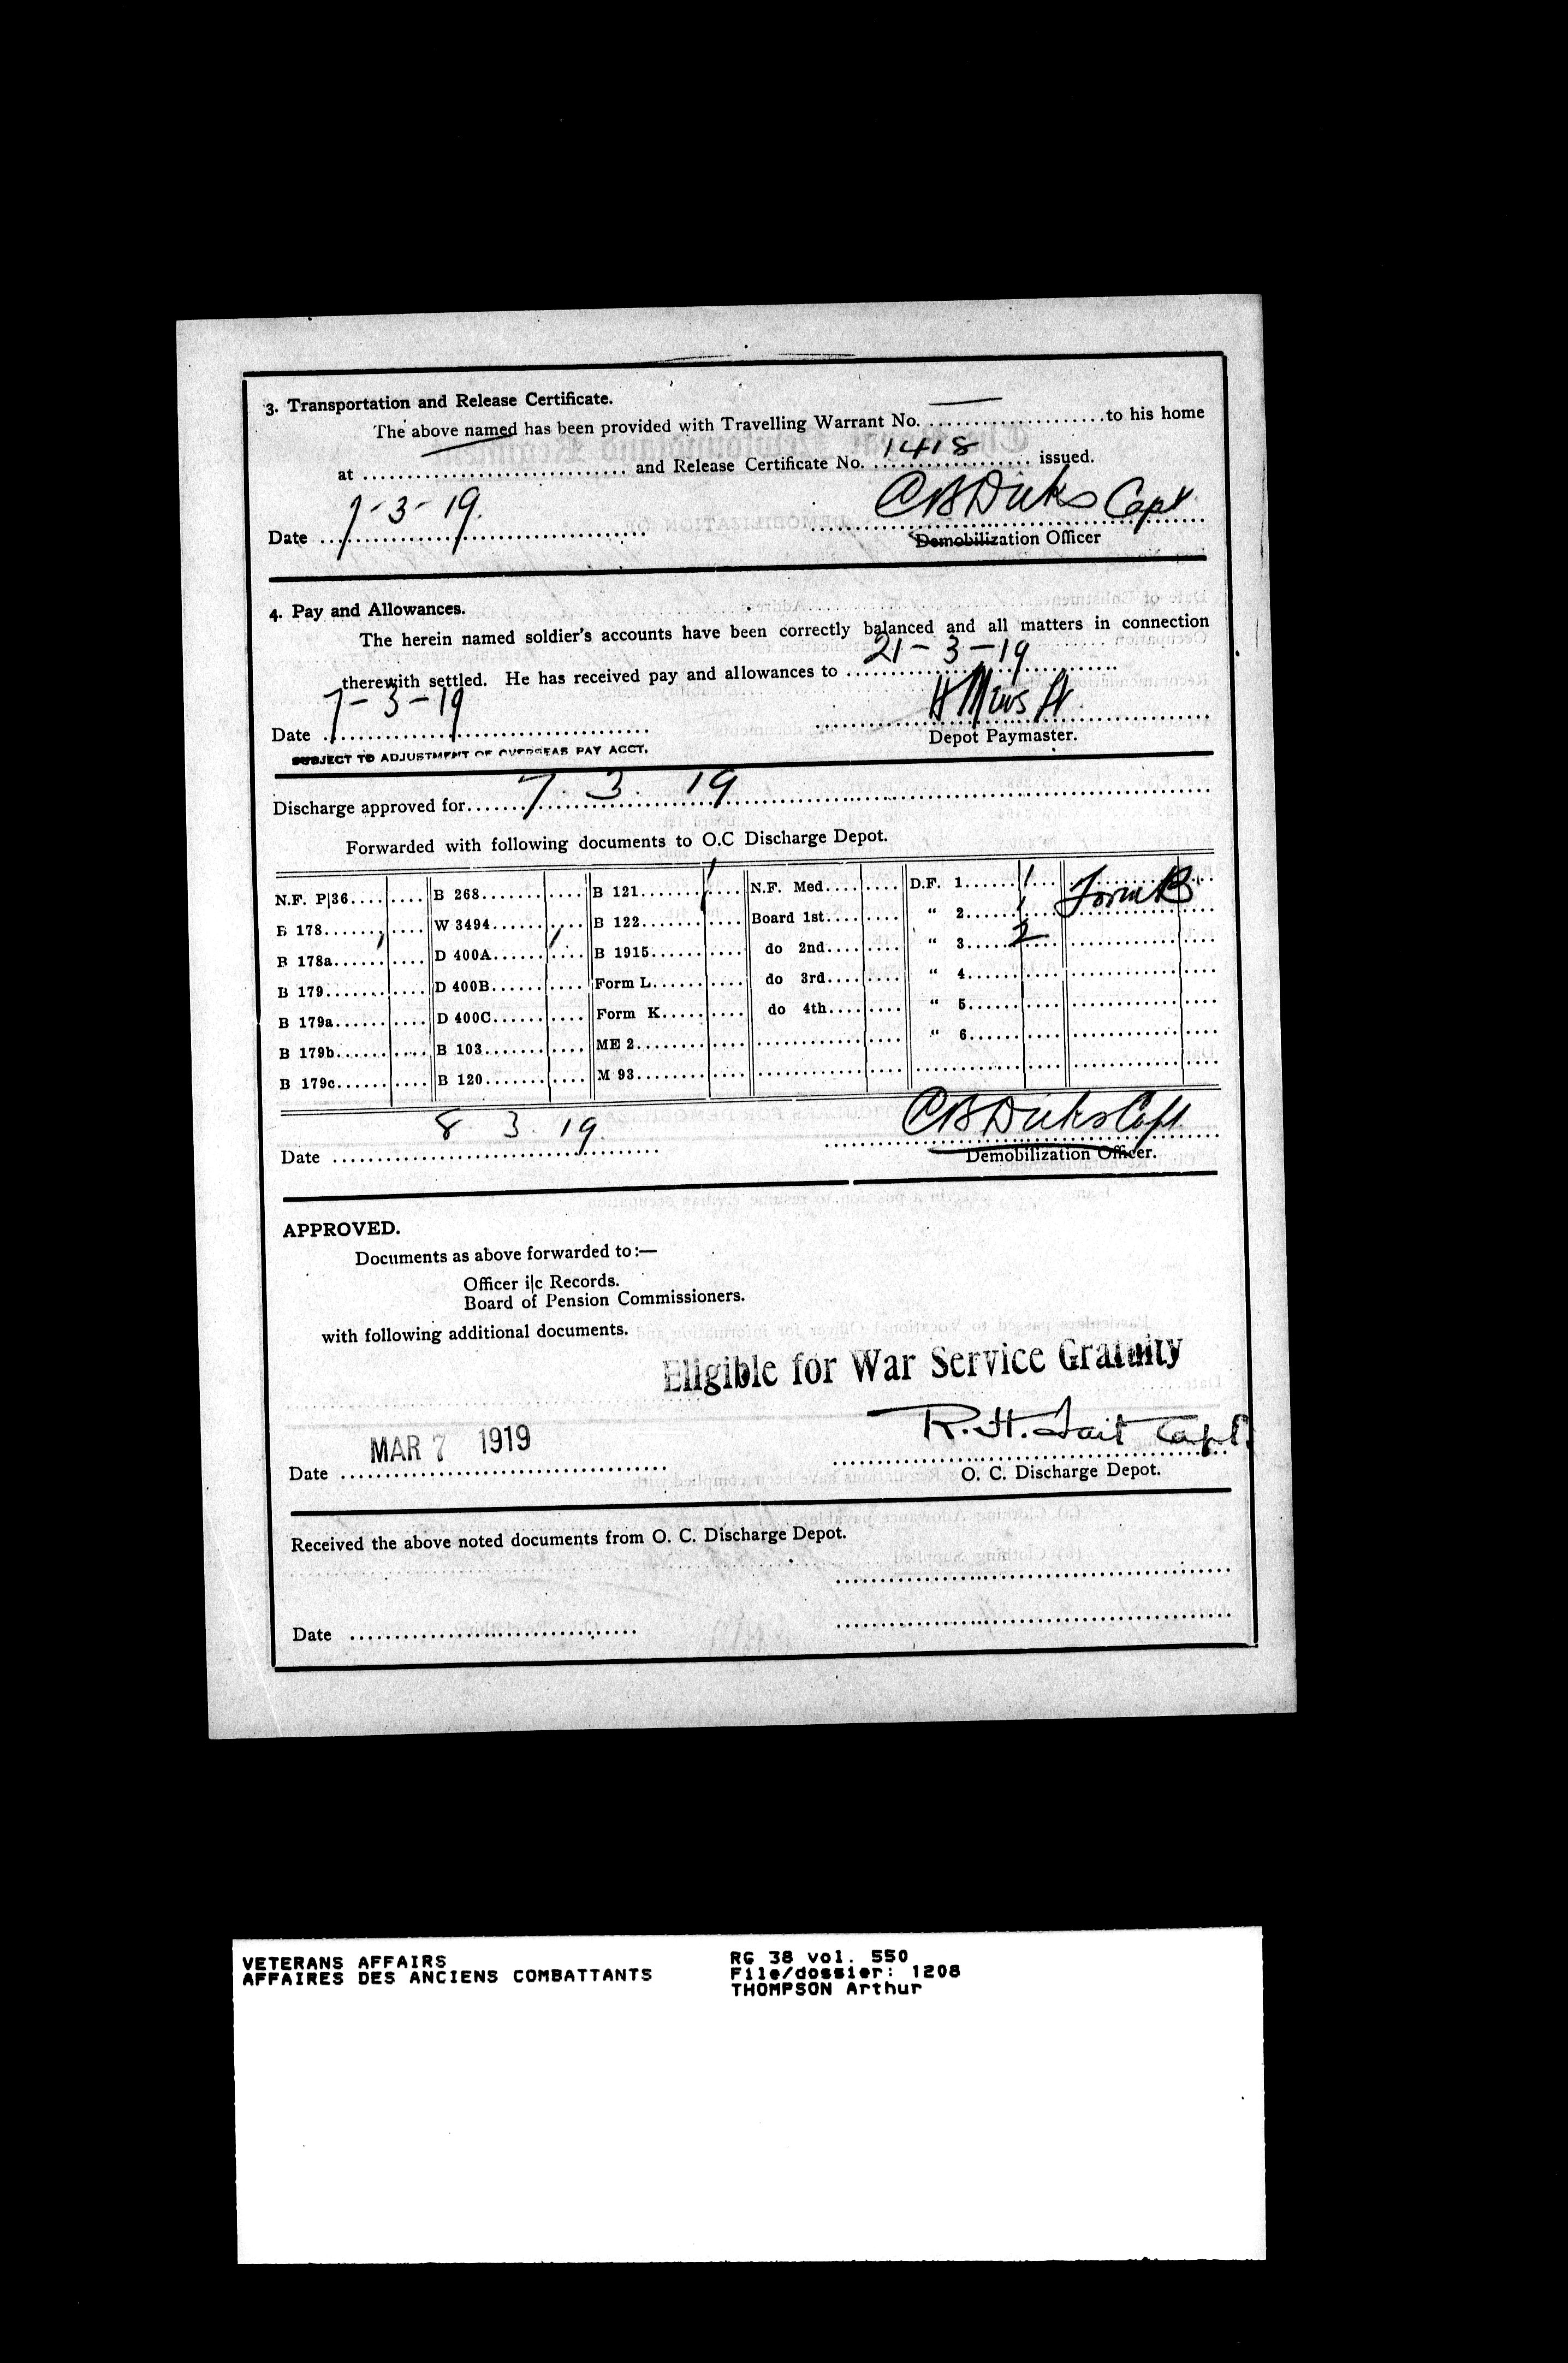 3. Transportation and Release Certificate.
The above named has been provided with Travelling Warrant No. .................... to his home
at .............................. and Release Certificate No. 1418 issued.
Date 7-3-19. C B Dicks Capt
Demobilization Officer
4. Pay and Allowances.
The herein named soldier's accounts have been correctly balanced and all matters in connection
therewith settled. He has received pay and allowances to 21-3-19
Date 7-3-19 H Mews Lt.
Depot Paymaster.
SUBJECT TO ADJUSTMENT OF OVERSEAS PAY ACCT.
Discharge approved for 7. 3. 19
Forwarded with following documents to O.C Discharge Depot.
N.F. P|36 B 268 B 121 1 N.F. Med. D.F. 1 1 Form B
B 178 W 3494 B 122 Board 1st " 2 1
B 178a 1 D 400A 1 B 1915 do 2nd " 3 2
B 179 D 400B Form L do 3rd " 4
B 179a D 400C Form K do 4th " 5
B 179b B 103 ME 2 " 6
B 179c B 120 M 93
Date 8 3. 19. C B Dicks Capt.
Demobilization Officer.
APPROVED.
Documents as above forwarded to:—
Officer i|c Records.
Board of Pension Commissioners.
with following additional documents.
Eligible for War Service Gratuity
Date MAR 7 1919 R. H. Tait Capt.
O. C. Discharge Depot.
Received the above noted documents from O. C. Discharge Depot.
Date
VETERANS AFFAIRS RG 38 vol. 550
AFFAIRES DES ANCIENS COMBATTANTS File/dossier: 1208
THOMPSON Arthur